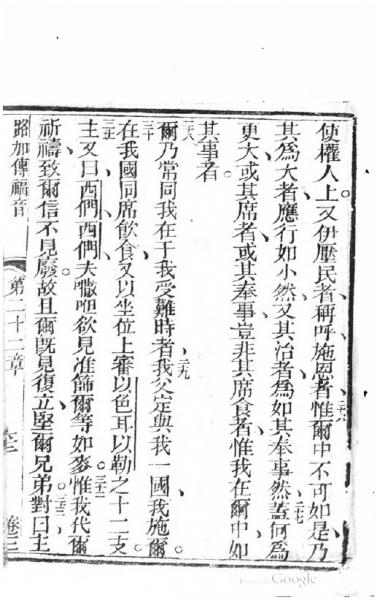 使權人上又伊壓民者稱呼施恩者惟爾中不可如是乃
其為大者應行如小然又其治者為如其奉事然蓋何為
更大或其席者或其奉事豈非其席食者惟我在爾中如
其事者
爾乃常同我在于我受難時者我父定與我一國我施爾
在我國同席飲食又以坐位上審以色耳以勒之十二支
主又曰西們西們夫㗭咀欲見准篩爾等如麥惟我代爾
祈禱致爾信不見廢故且爾既見復立堅爾兄弟對曰主
路加傳福音 第二十二章 卷三
Google